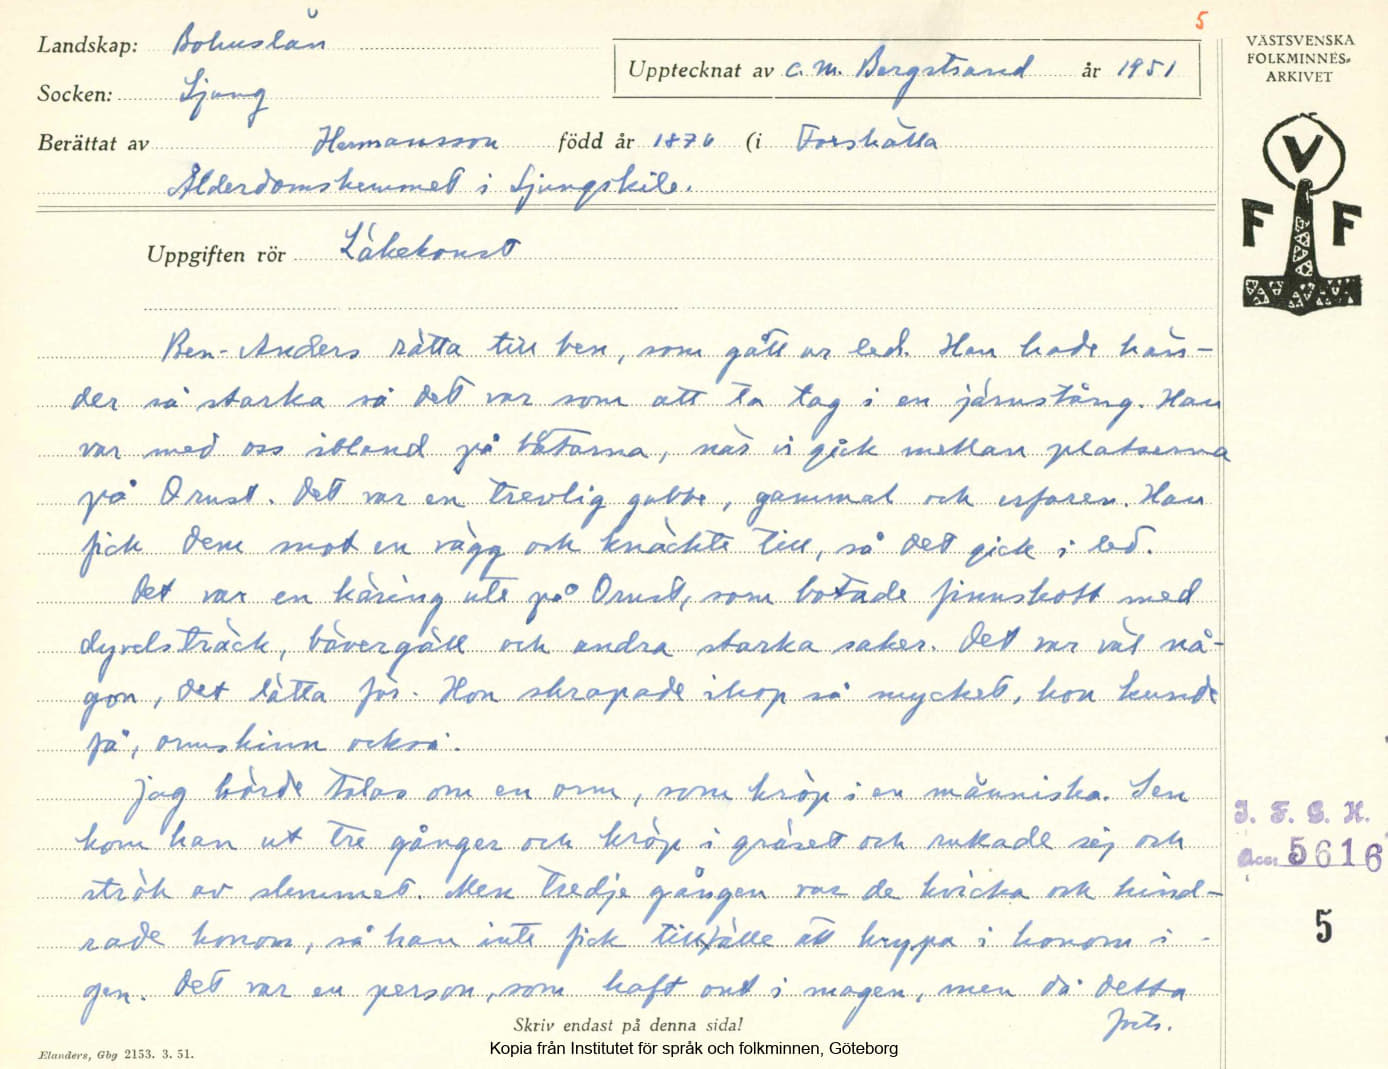 5
Landskap: Bohuslän
Upptecknat av C. M. Bergstrand år 1951
VÄSTSVENSKA
FOLKMINNES-
ARKIVET
Socken: Ljung
Berättat av Hermansson född år 1876 (i Forshälla
Ålderdomshemmet i Ljungskile.
V
F F
Uppgiften rör Läkekonst
Ben-Anders rätta till ben, som gått ur led. Han hade hän-
der så starka så det var som att ta tag i en järnstång. Han
var med oss ibland på båtarna, när vi gick mellan platserna
på Orust. Det var en trevlig gubbe, gammal och erfaren. Han
fick dem mot en vägg och knäckte till, så det gick i led.
Det var en käring ute på Orust, som botade finnskott med
dyvelsträck, bävergäll och andra starka saker. Det var väl nå-
gon, det lätta för. Hon skrapade ihop så mycket, hon kunde
få, ormskinn också.
Jag hörde talas om en orm, som kröp i en människa. Sen
kom han ut tre gånger och kröp i gräset och rukade sej och
strök av slemmet. Men tredje gången var de kvicka och hind-
rade honom, så han inte fick tillfälle att krypa i honom i-
gen. Det var en person, som haft ont i magen, men då detta
forts.
I. F. G. H.
acc. 5616
5
Skriv endast på denna sida!
Elanders, Gbg 2153. 3. 51.
Kopia från Institutet för språk och folkminnen, Göteborg